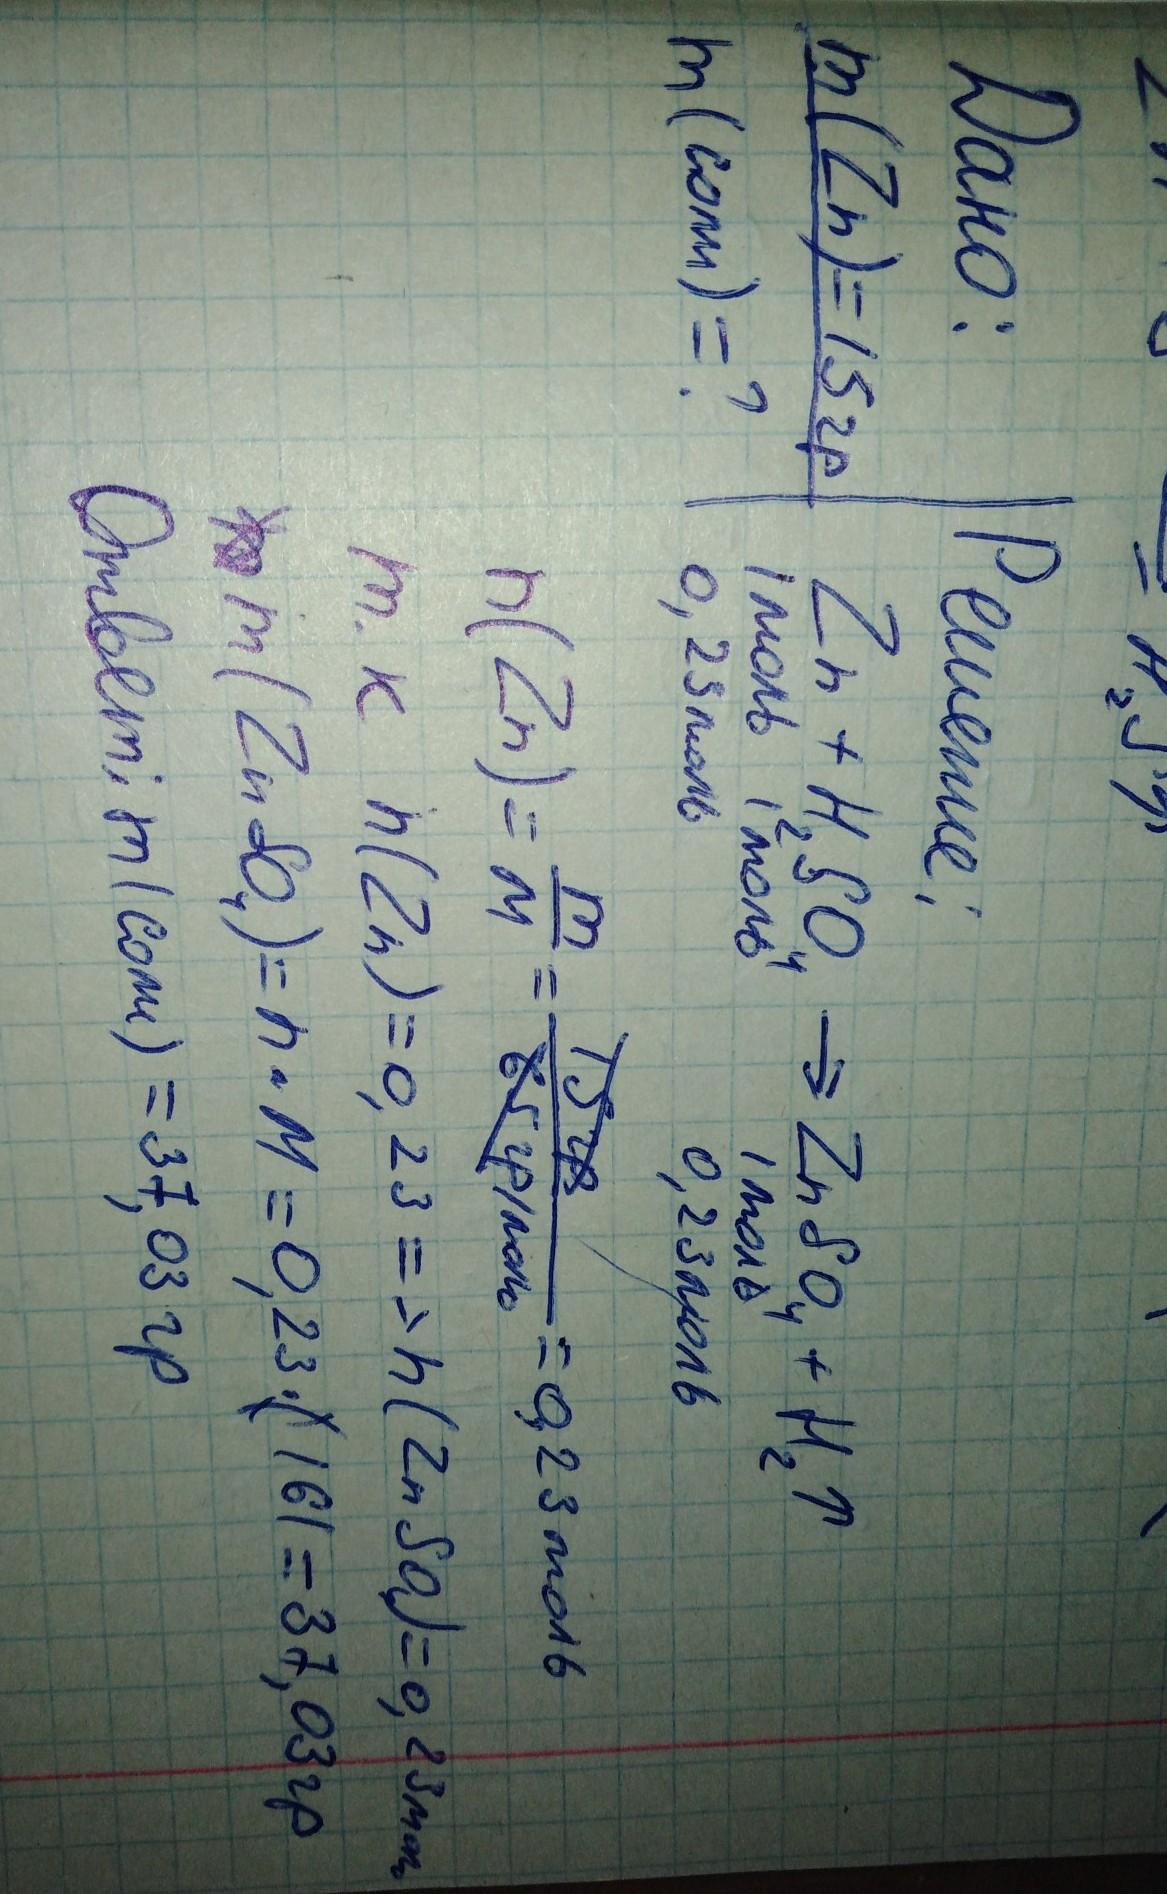 Дано:
m(Zn)=15гр
m(соли)=?
Решение:
Zn + H₂SO₄ → ZnSO₄ + H₂↑
1моль 1моль 1моль
0,23моль 0,23моль
n(Zn) = m/M = 15гр/65гр/моль = 0,23моль
т.к n(Zn) = 0,23 => n(ZnSO₄) = 0,23мол
m(ZnSO₄) = n·M = 0,23·161 = 37,03гр
Ответ: m(соли) = 37,03гр